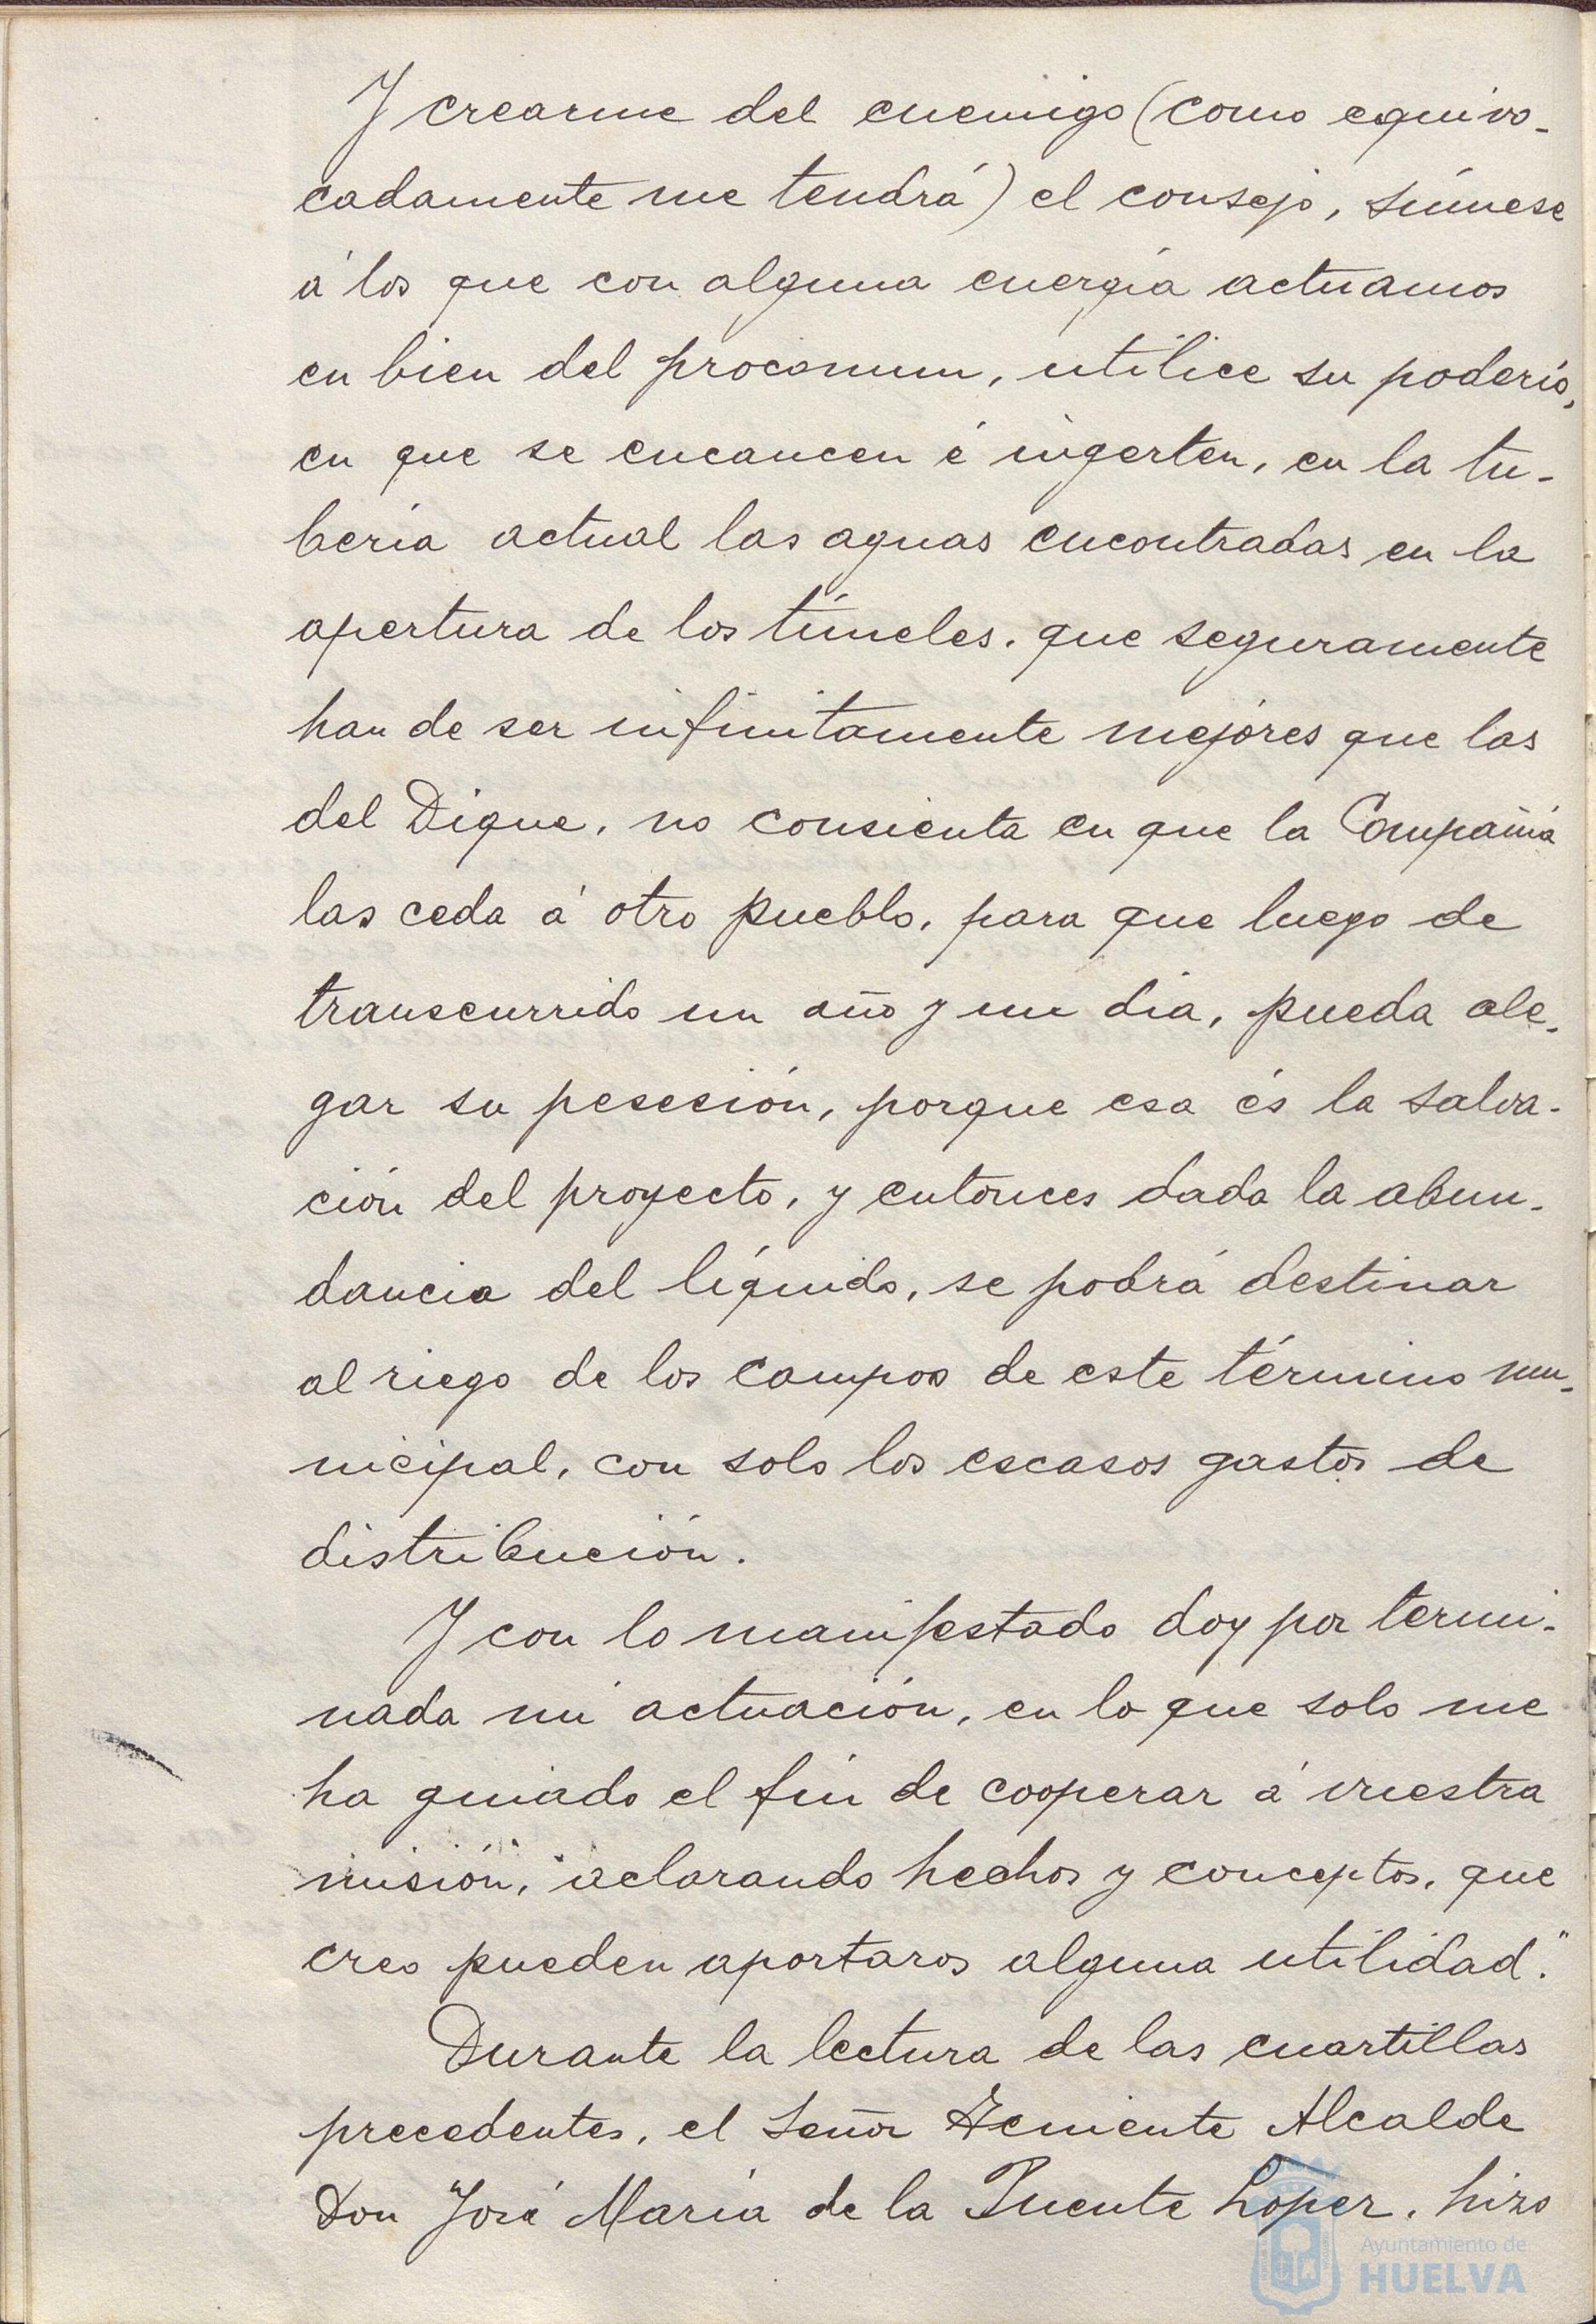 Y crearme del enemigo (como equivo-
cadamente me tendrá) el consejo, súmese
á los que con alguna energía actuamos
en bien del procomun, utilice su poderío,
en que se encaucen é ingerten, en la tu-
bería actual las aguas encontradas en la
apertura de los túneles. que seguramente
han de ser infinitamente mejores que las
del Dique, no consienta en que la Compañía
las ceda á otro pueblo, para que luego de
transcurrido un año y un dia, pueda ale-
gar su pesesión, porque esa és la salva-
ción del proyecto, y entonces dada la abun-
dancia del líquido, se podrá destinar
al riego de los campos de este término mu-
nicipal, con solo los escasos gastos de
distribución.
Y con lo manifestado doy por termi-
nada mi actuación, en lo que solo me
ha guiado el fin de cooperar á vuestra
misión, aclarando hechos y conceptos, que
creo pueden aportaros alguna utilidad."
Durante la lectura de las cuartillas
precedentes, el Señor Teniente Alcalde
Don José María de la Puente López, hizo
Ayuntamiento de
HUELVA